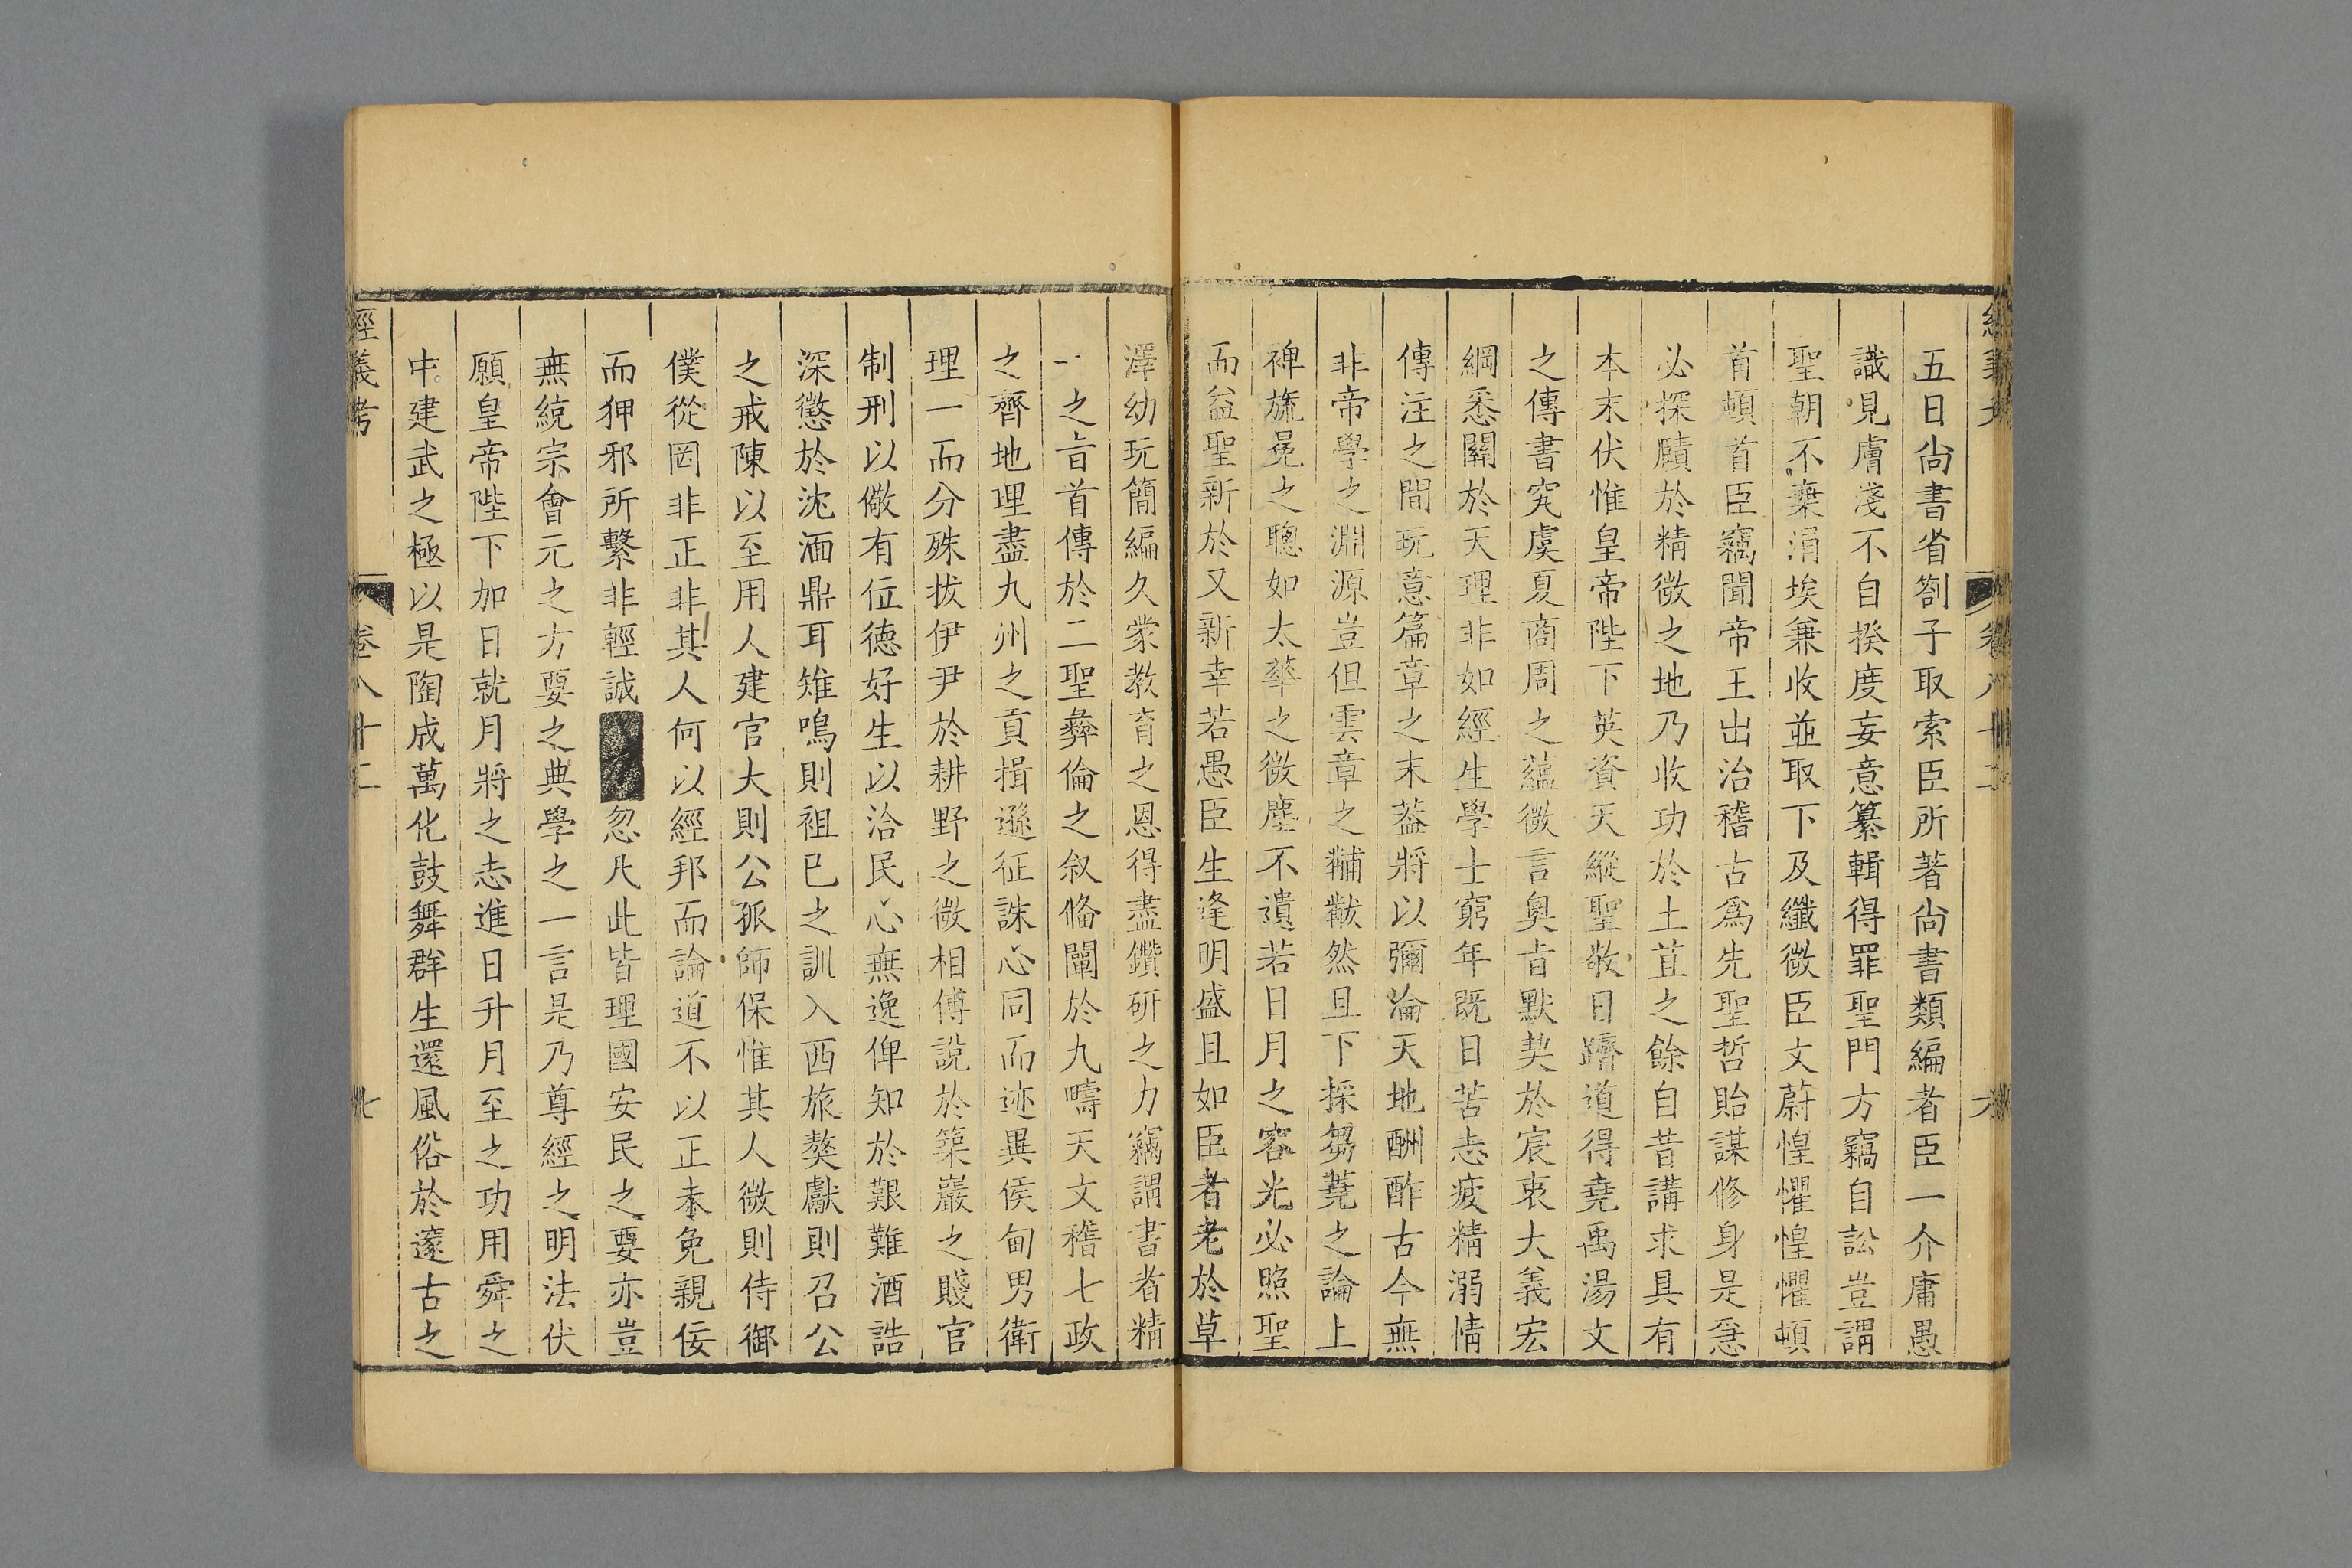 五日尙書省劄子取索臣所著尙書類編者臣一介庸愚
識見膚淺不自揆度妄意纂輯得罪聖門方竊自訟豈謂
聖朝不棄涓埃兼收並取下及纖微臣文蔚惶懼惶懼頓
首頓首臣竊聞帝王出治稽古爲先聖哲貽謀修身是急
必探賾於精微之地乃收功於土苴之餘自昔講求具有
本末伏惟皇帝陛下英資天縱聖敬日躋道得堯禹湯文
之傳書究虞夏商周之蘊微言奧旨默契於宸衷大義宏
綱悉關於天理非如經生學士窮年旣日苦志疲精溺情
傳注之間玩意篇章之末葢將以彌淪天地酬酢古今無
非帝學之淵源豈但雲章之黼黻然且下採芻蕘之論上
裨旒冕之聰如太華之微塵不遺若日月之容光必照聖
而益聖新於又新幸若愚臣生逢明盛且如臣者老於草
澤幼玩簡編久蒙教育之恩得盡鑽硏之力竊謂書者精
一之旨首傳於二聖彝倫之叙俻闡於九疇天文稽七政
之齊地理盡九州之貢揖遜征誅心同而迹異侯甸男衛
理一而分殊拔伊尹於耕野之微相傅說於築巖之賤官
制刑以儆有位德好生以洽民心無逸俾知於艱難酒誥
深懲於沈湎鼎耳雉鳴則祖巳之訓入西旅獒獻則召公
之戒陳以至用人建官大則公孤師保惟其人微則侍御
僕從罔非正非其人何以經邦而論道不以正未免親佞
而狎邪所繫非輕誠忽凡此皆理國安民之要亦豈
無統宗會元之方要之典學之一言是乃尊經之明法伏
願皇帝陛下加日就月將之志進日升月至之功用舜之
中建武之極以是陶成萬化鼓舞群生還風俗於邃古之
經義考
卷八十二
七